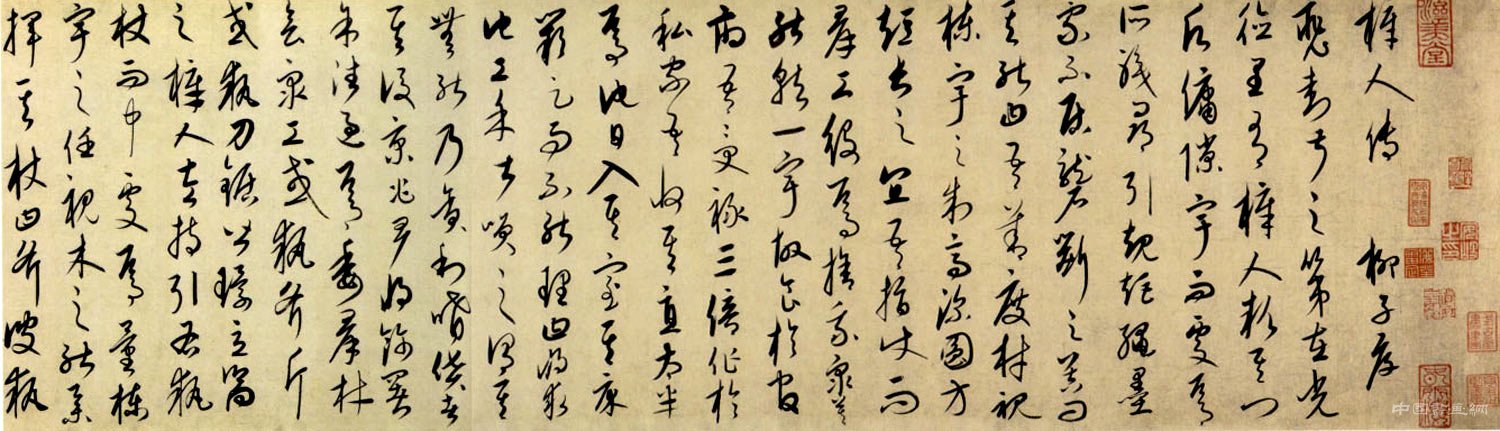 梓人傳 柳子厚
裴封叔之第在光
德里有梓人款其門
願傭隙宇而處焉
所職尋引規矩繩墨
家不居礱斲之器問
其能曰吾善度材視
棟宇之制高深圓方
短長之宜吾指使而
群工役焉捨我衆莫
能就一宇故食於官
府吾受祿三倍作於
私家吾收其直太半
焉他日入其室其床
闕足而不能理曰將求
他工余甚笑之謂其
無能乃貪利嗜貨者
其後京兆尹將飾署
余往過焉委群材
會衆工或執斧斤
或執刀鋸皆環立嚮
之梓人左持引右執
杖而中處焉量棟
宇之任視木之能舉
揮其杖曰斧彼執
中国书画網